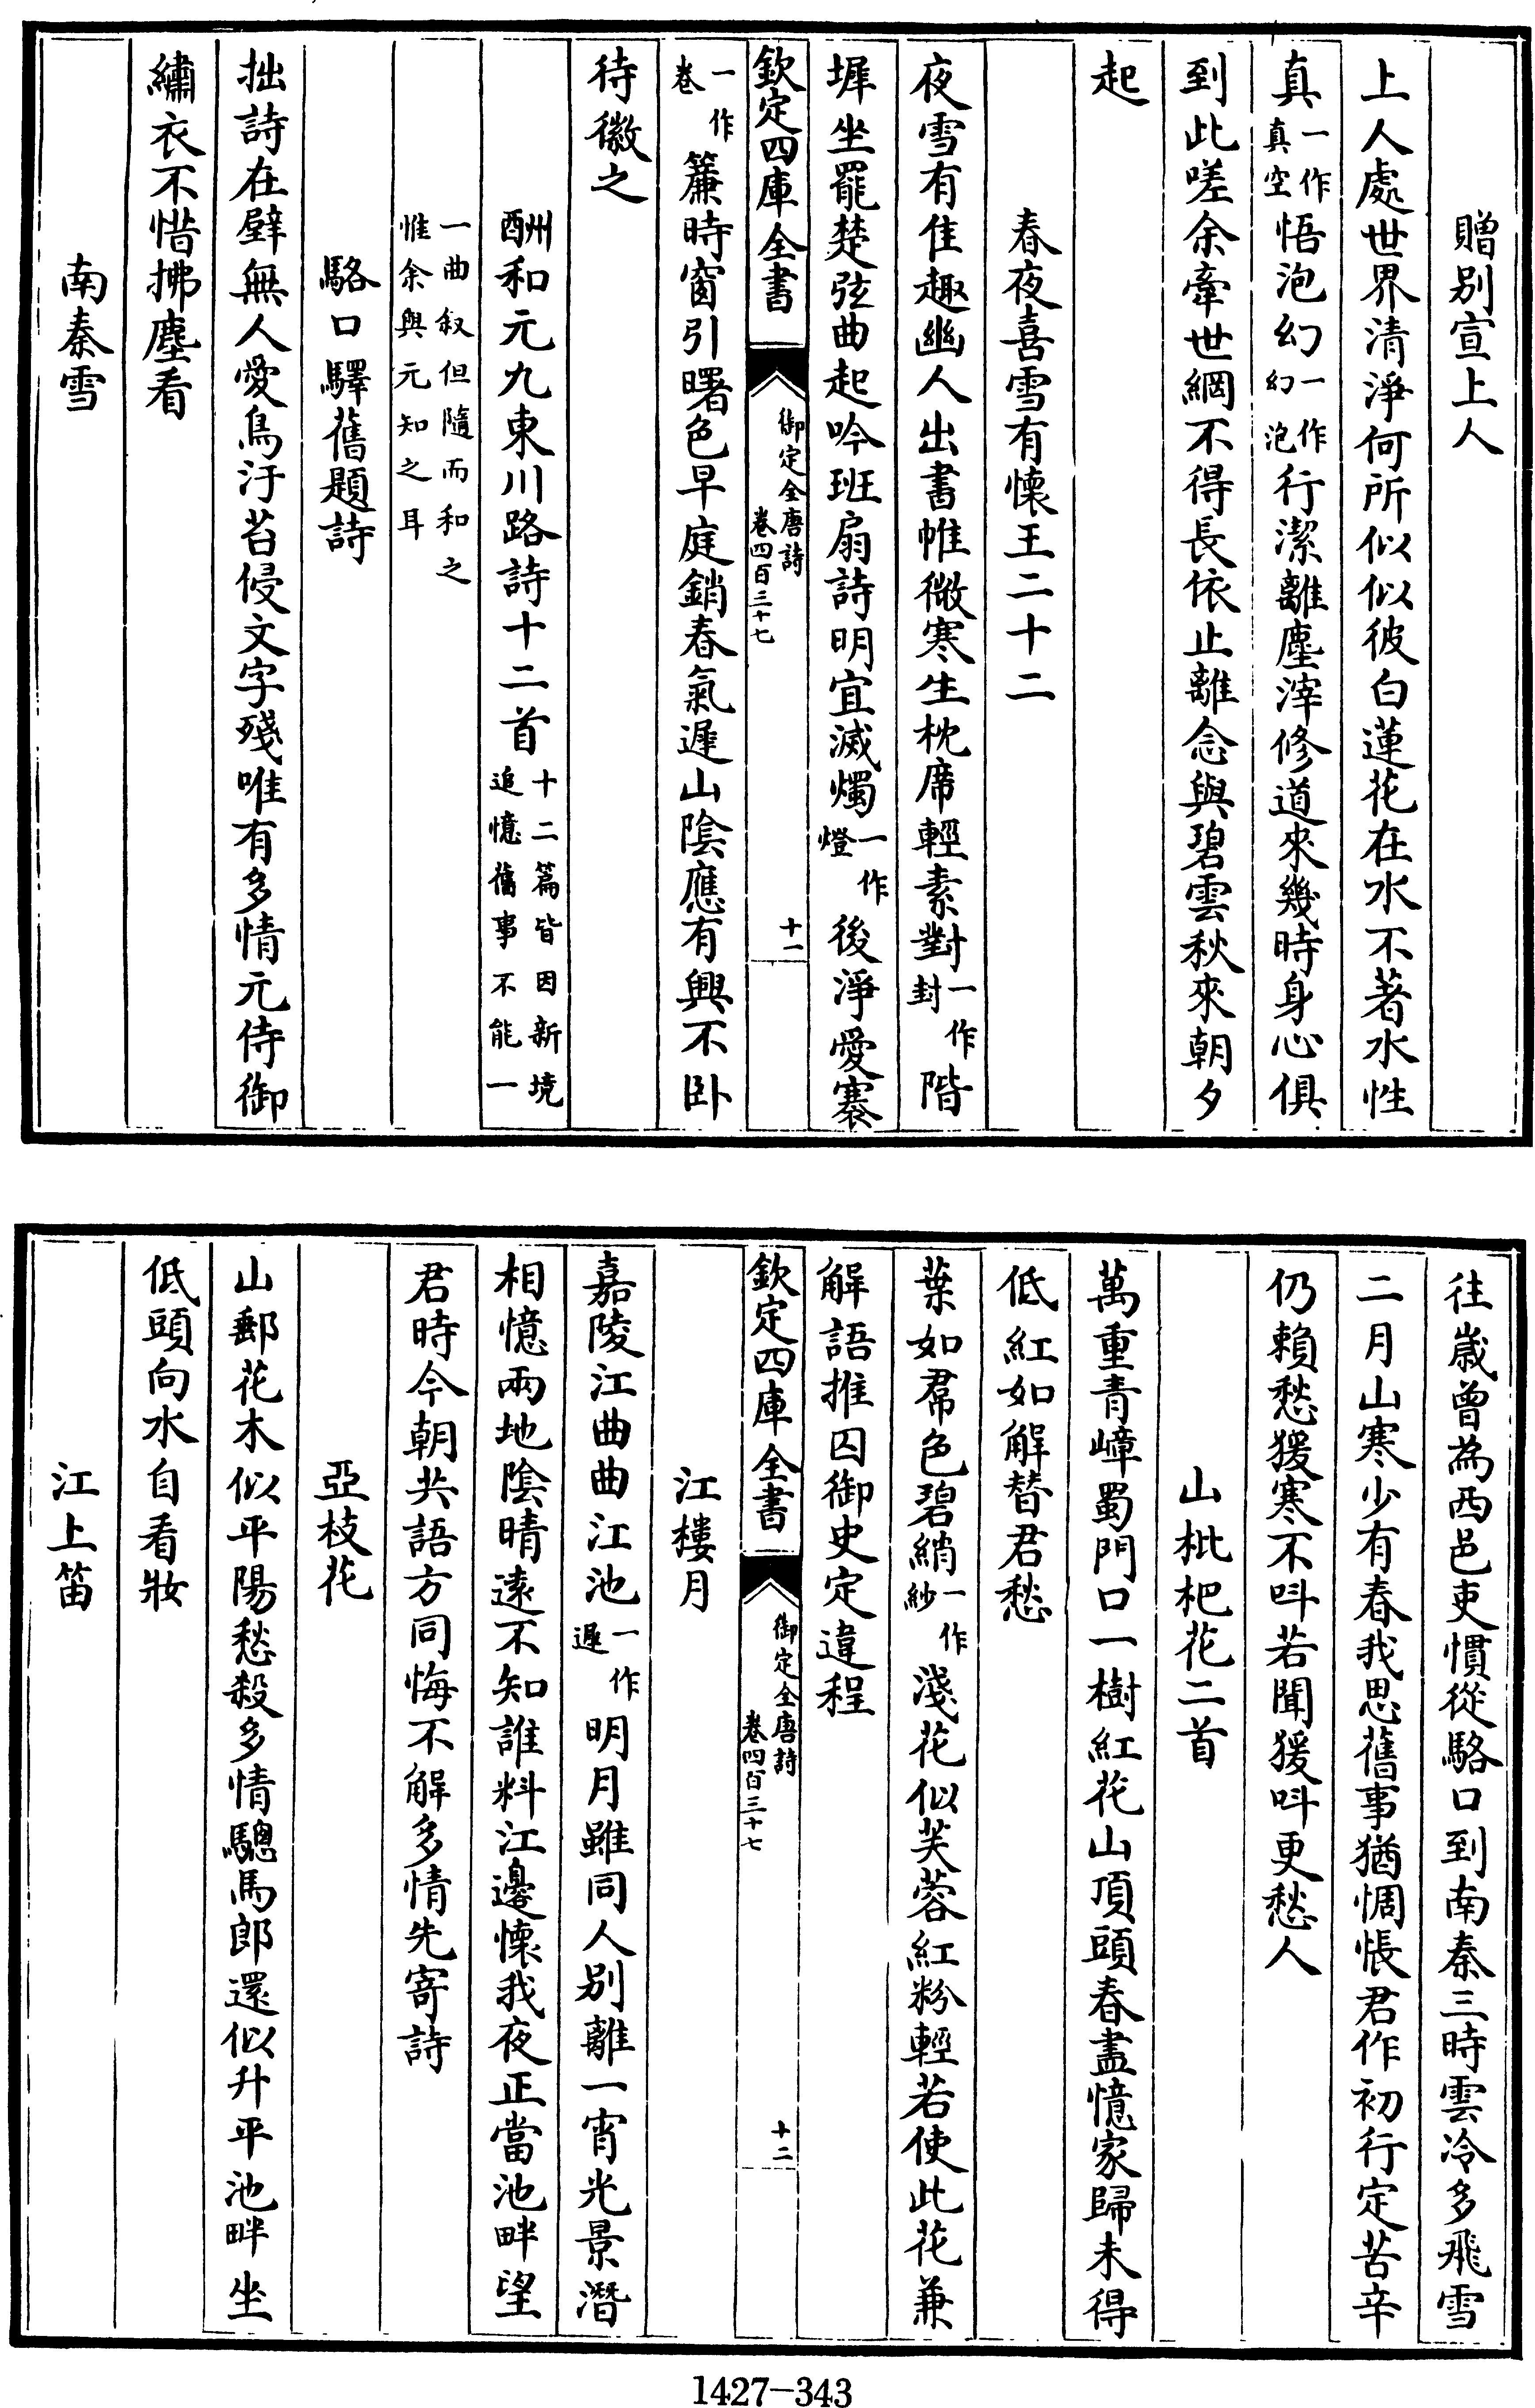 贈别宣上人
上人處世界清淨何所似似彼白蓮花在水不著水性
真一作真空悟泡幻一作幻泡行潔離塵滓修道來幾時身心俱
到此嗟余牽世網不得長依止離念與碧雲秋來朝夕
起
春夜喜雪有懷王二十二
夜雪有佳趣幽人出書帷微寒生枕席輕素對一作封階
墀坐罷楚弦曲起吟班扇詩明宜滅燭一作燈後淨愛褰
欽定四庫全書
御定全唐詩
卷四百三十七
十一
一作卷簾時窗引曙色早庭銷春氣遲山陰應有興不卧
待徽之
酬和元九東川路詩十二首十二篇皆因新境追憶舊事不能一
一曲叙但隨而和之惟余與元知之耳
駱口驛舊題詩
拙詩在壁無人愛鳥汙苔侵文字殘唯有多情元侍御
繡衣不惜拂塵看
南秦雪
往歲曾為西邑吏慣從駱口到南秦三時雲冷多飛雪
二月山寒少有春我思舊事猶惆悵君作初行定苦辛
仍賴愁猨寒不呌若聞猨呌更愁人
山枇杷花二首
萬重青嶂蜀門口一樹紅花山頂頭春盡憶家歸未得
低紅如解替君愁
葉如帬色碧綃一作紗淺花似芙蓉紅粉輕若使此花兼
解語推囚御史定違程
欽定四庫全書
御定全唐詩
卷四百三十七
十二
江樓月
嘉陵江曲曲江池一作遲明月雖同人别離一宵光景潛
相憶兩地陰晴遠不知誰料江邊懷我夜正當池畔望
君時今朝共語方同悔不解多情先寄詩
亞枝花
山郵花木似平陽愁殺多情驄馬郎還似升平池畔坐
低頭向水自看妝
江上笛
1427-343